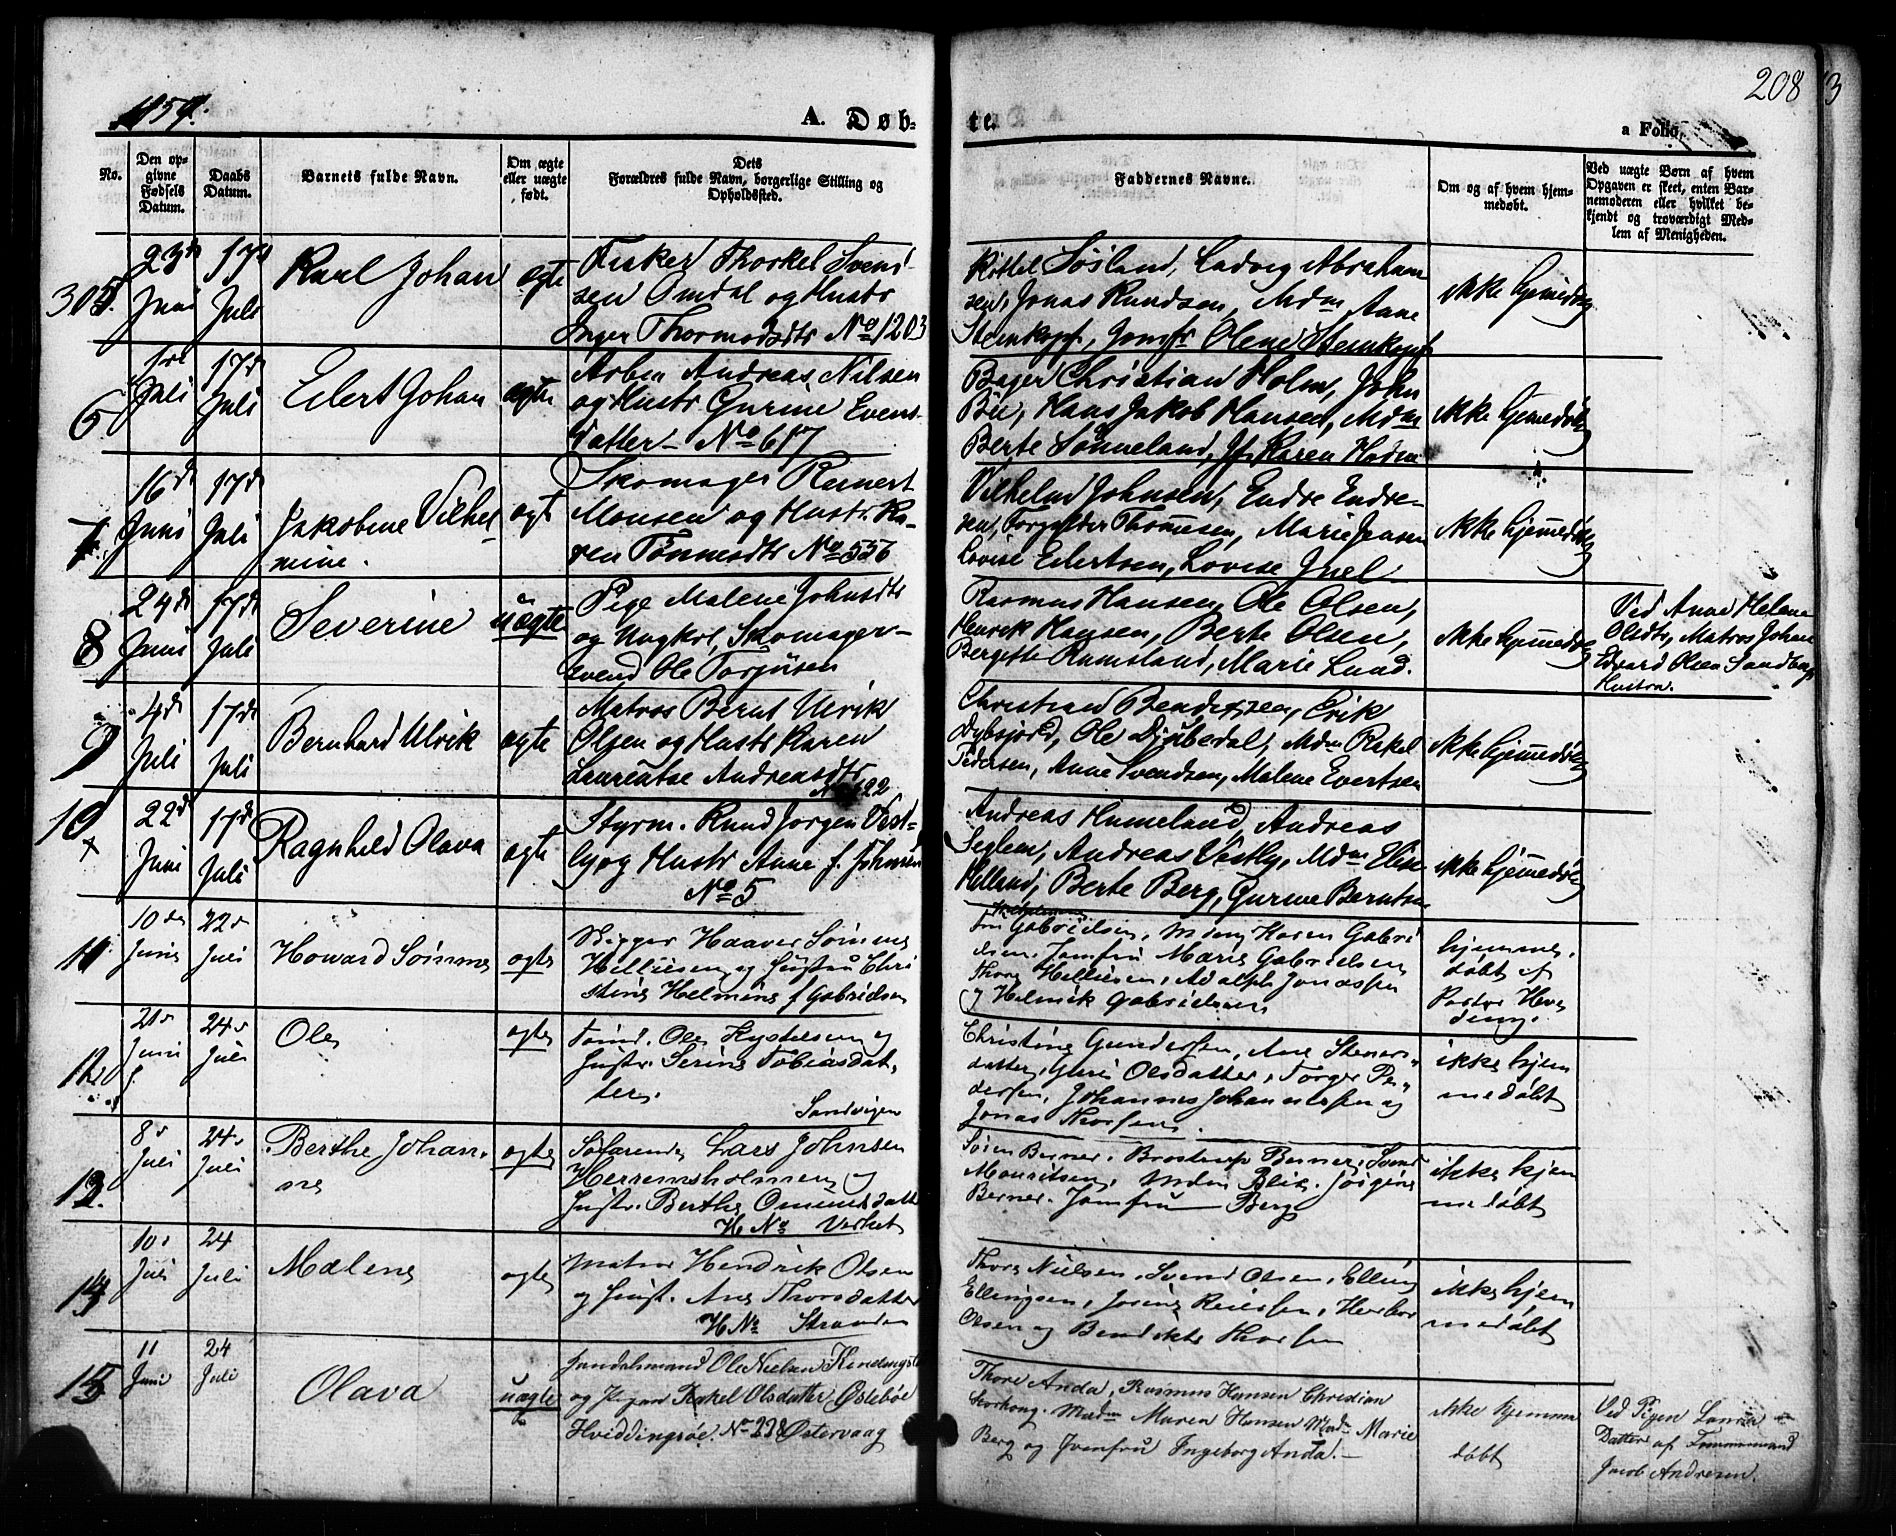 1859.
A. Døb-
te.
208
a Folio
No.
Den op-
givne
Fødsels
Datum.
Daabs
Datum.
Barnets fulde Navn.
Om ægte
eller uægte
født.
Dets
Forældres fulde Navn, borgerlige Stilling og
Opholdssted.
Faddernes Navne.
Om og af hvem hjem-
medøbt.
Ved uægte Børn af hvem
Opgaven er skeet, enten Bar-
nemoderen eller hvilket be-
kjendt og troværdigt Med-
lem af Menigheden.
305.
23d
Juni
17d
Juli
Karl Johan
ægte
Fisker Thorkel Svend-
sen Omdal og Hustr
Inger Thormodsdtr No 1203
Kittel Søiland, Ladvig Abraham
sen, Jonas Knudsen, Mdm Anne
Stemkopf, Jomfr Olene Stemkopf
ikke hjemedøbt
6
1ste
Juli
17d
Juli
Edert Johan
ægte
Arben Andreas Nilsen
og Hustr Gurine Evens-
datter – No 617
Bager Christian Holm, John
Bie, Hans Jakob Hansen, Mdm
Berte Sømeland, Jf. Karen
ikke hjemedøbt
7
16d
Juni
17d
Juli
Jakobine Vilhel-
mine.
ægt
Skomager Reinert
Monsen og Hustr. Ka-
ren Tønnesdtr No 556
Vilhelm Johnsen, Endre Endre-
sen, Thomesen, Marie Jensen
Lovise Edertsen, Lovise Juel
ikke hjemedøbt
8
24d
Juni
17d
Juli
Severine
uægte
Pige Malene Johnsdtr
og Ungkrl, Skomager-
svend Ole Torjusen
Rasmus Hansen, Ole Olsen,
Henrik Hansen, Berte Olsen,
Bergette Ramsland, Marie Lund.
ikke hjemedøbt
Ved Anne Helene
Olsdtr, Matros Johan
Edvard Olsen Sandbergs
Hustru.
9
4d
Juli
17d
Juli
Bernhard Ulrik
ægte
Matros Bernt Ulrik
Olsen og Hustr Karen
Laurentse Andreasdtr
Christian Bendixen, Erik
Dybsjord, Ole Djubedal, Mdm Rakel
Pedersen, Anne Svendsen, Malene Evertsen
ikke hjemedøbt
10
22d
Juni
17d
Juli
Ragnhild Olava
ægte
Styrm. Knud Jørgen Vest-
ly og Hustr Anne f. Johnsen
No 5
Andreas Humeland, Andreas
Seglem, Andreas Vestly, Mdm Elise
Helland, Berte Berg, Gurine Berntsen
ikke hjemedøbt
11
10de
Juni
22d
Juli
Howard Sømme
ægte
Skipper Haaver Sømme
Helliesen og Hustru Chri
stine Helmine f Gabrielsen
Fru Gabrielsen, Mdm Karen Gabri
elsen, Jomfru Marie Gabrielsen
Thore Helliesen, Adolph Jonassen
og Helmik Gabrielsen
hjemme-
døbt af
Pastor
12
21d
Juni
24d
Juli
Ole
ægte
Tømd. Ole Kystelsen og
Hustr. Serine Tobiasdat-
ter.
Sandvigen
Christine Gundersen, Ane Steners-
datter, Guri Olsdatter, Torger Pe-
dersen, Johannes Johannessen og
Jonas Thorsen.
ikke hjem
medøbt
13.
8d
Juli
24d
Juli
Berthe Johan-
ne
ægte
Søfarende Lars Johnsen
Herremsholmen og
Hustr. Berthe Omundsdatt
H No Verket
Søren Berner, Brostrup Berner, Svend
Mauritsen, Mdm Blix, Jørgine
Berner. Jomfru Berg
ikke hjem
medøbt
14
10d
Juli
24
Juli
Malene
ægte
Matros Hendrik Olsen
og Hust. Ane Thorsdatter
H No Stranden
Thore Nielsen, Svend Olsen, Elling
Ellingsen, Josine Reiersen, Herbor
Olsen og Bendikte Thorsen
ikke hjem
medøbt
15
11
Juni
24
Juli
Olava
uægte
Landsmand Ole Nielsen
og Pigen Rakel Olsdatter Østebøe
Hviddingsøe. No 278 Østervaag
Thore Anda, Rasmus Hansen Christian
Skorhong. Madm Maren Hansen Madm Marie
Berg og Jomfru Ingeborg Anda. –
ikke hjemme
døbt
Ved Pigen
Datter af Tømmermand
Jacob Andresen.